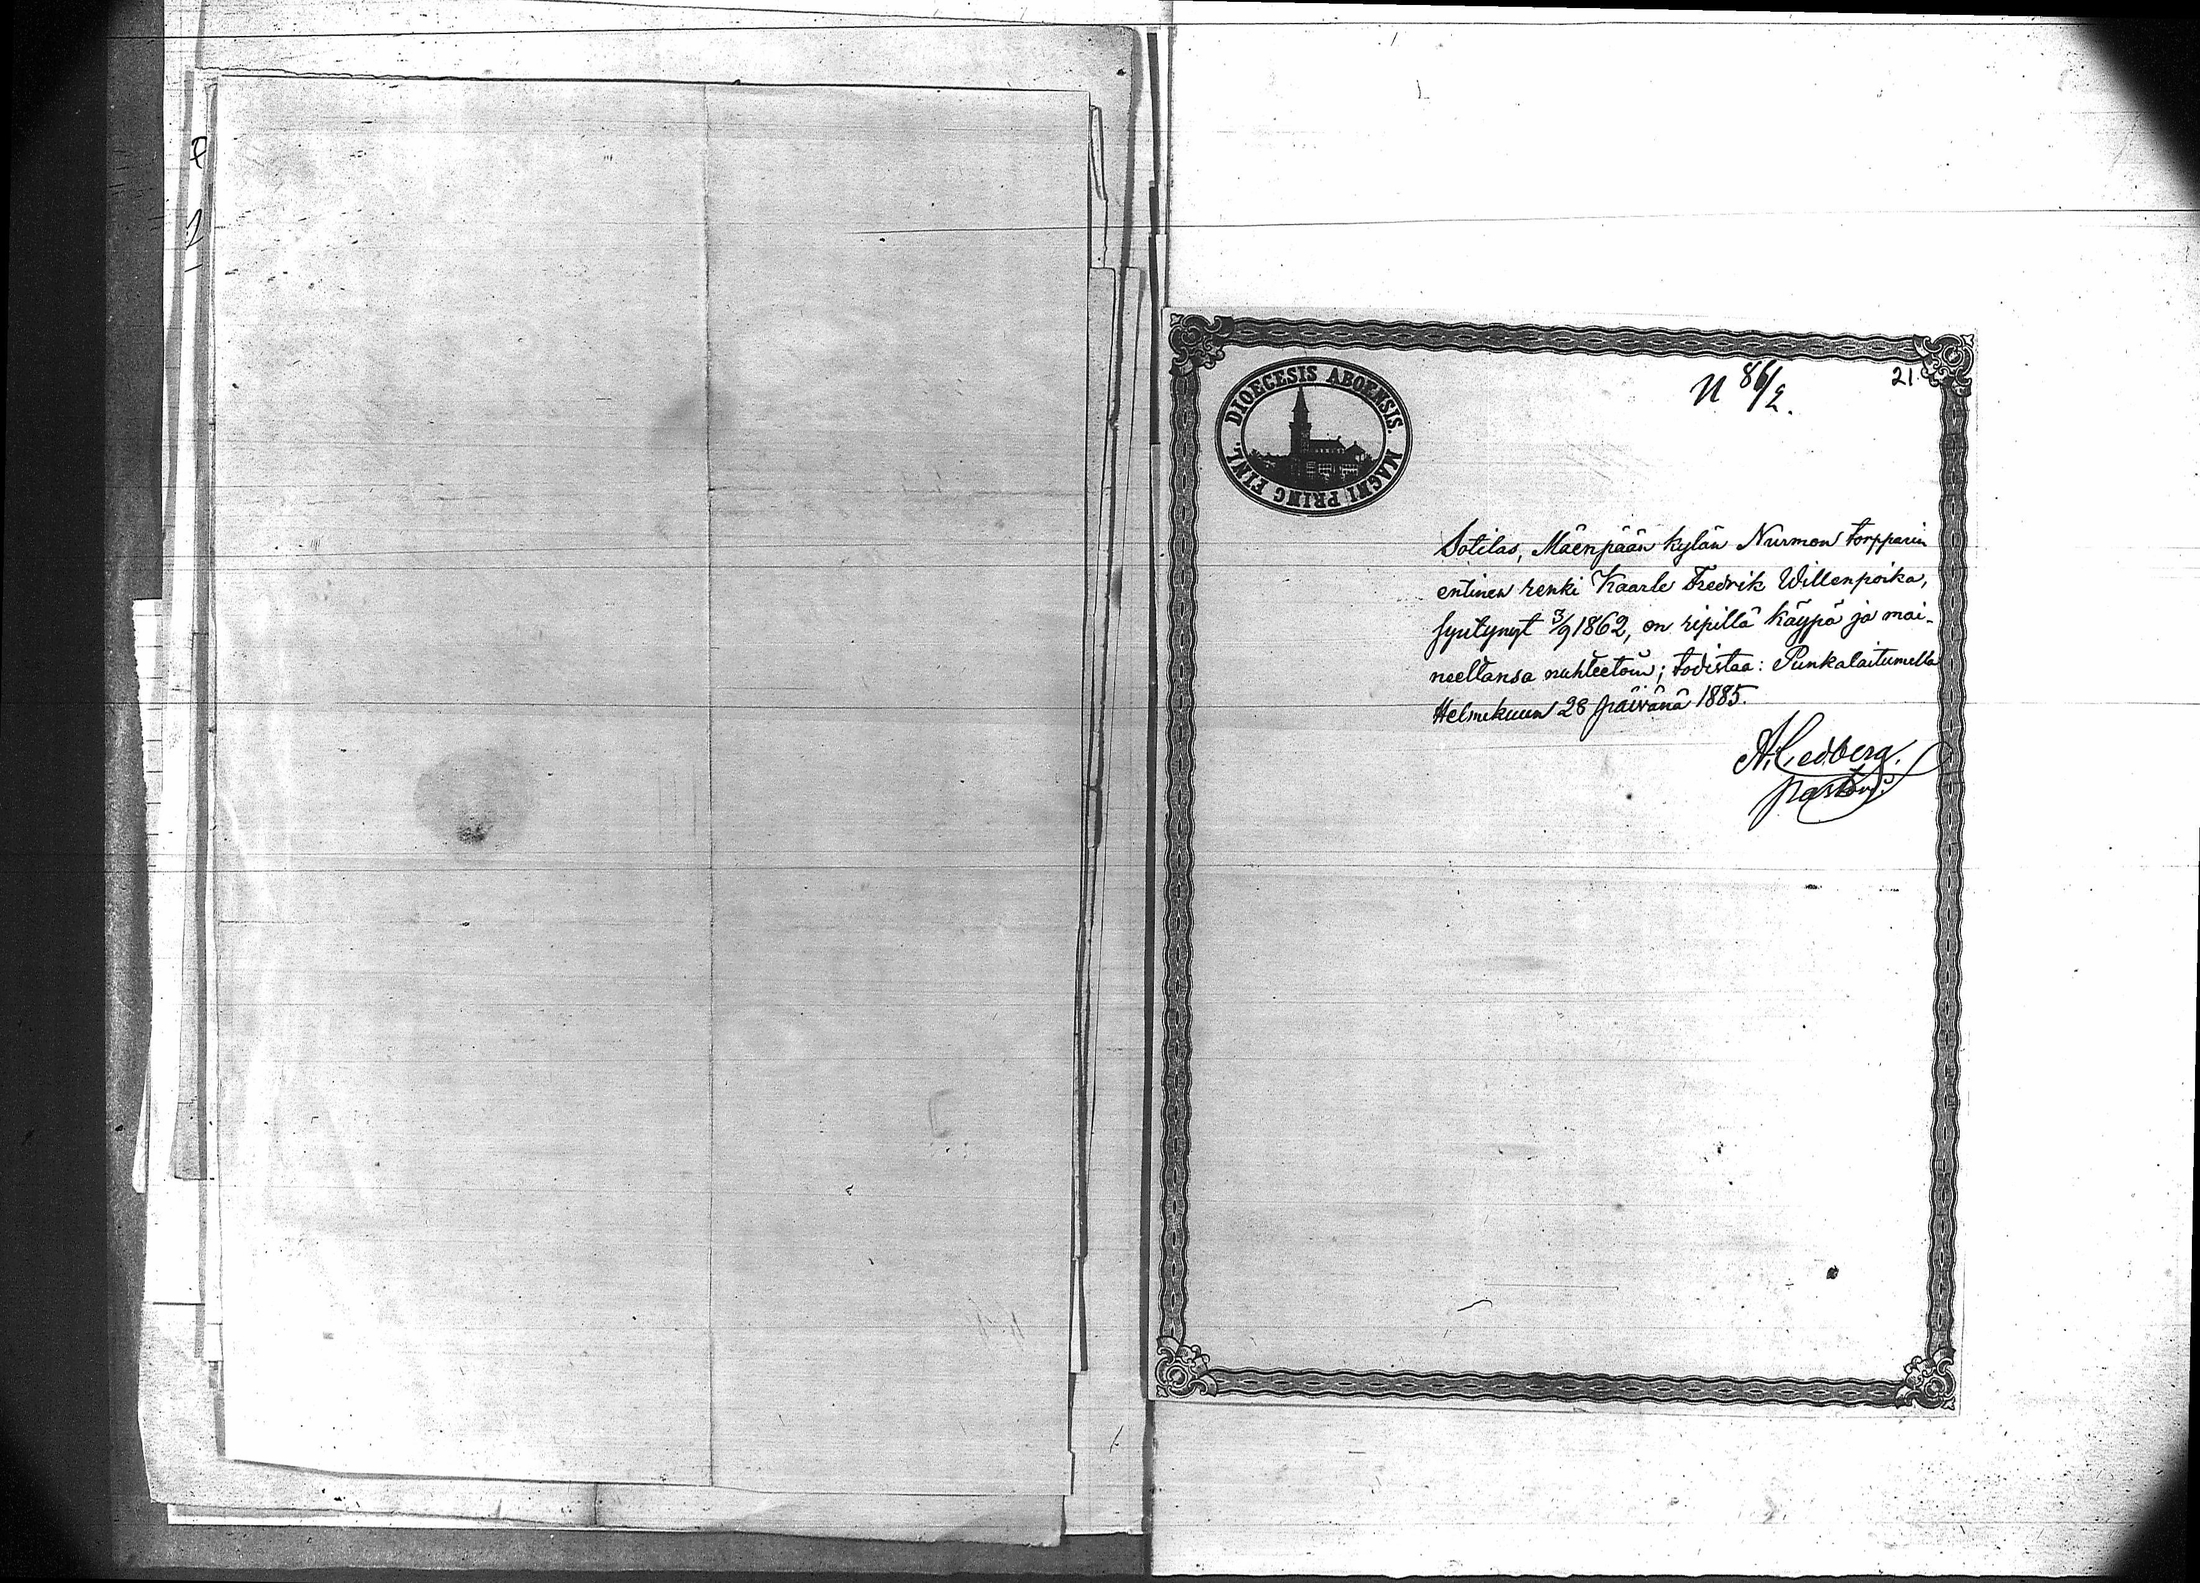 DIOECESIS ABOENSIS. MAGNI PRINC FINL.
N 86/2.
21.
Sotilas, Mäenpään kylän Nurmen torpparin
entinen renki Kaarle Fredrik Willenpoika,
syntynyt 3/9 1862, on ripillä käypä ja mai-
neeltansa nuhteetoin; todistaa: Punkalaitumella
Helmikuun 28 päivänä 1885.
A. Cedberg.
pastori.